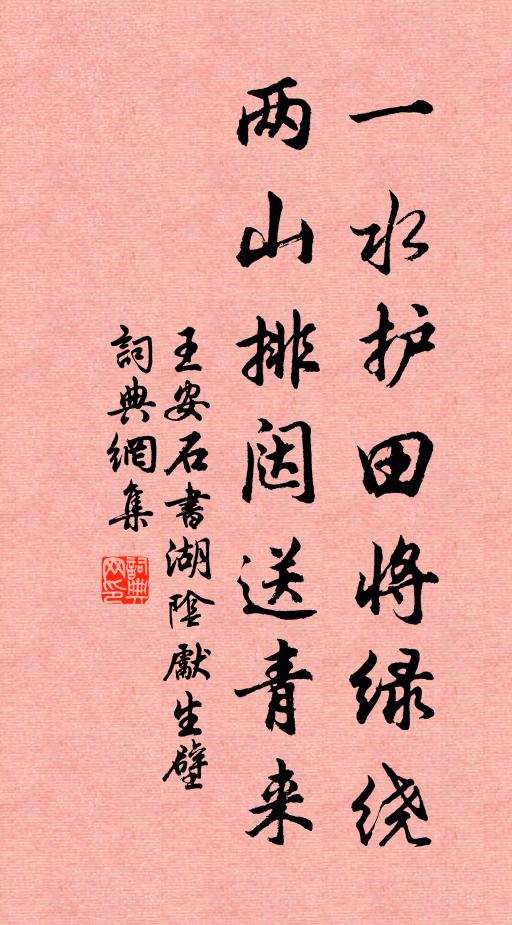 一水护田将绿绕
两山排闼送青来
王安石書湖陰獻生壁
詞典網集
詞典网印